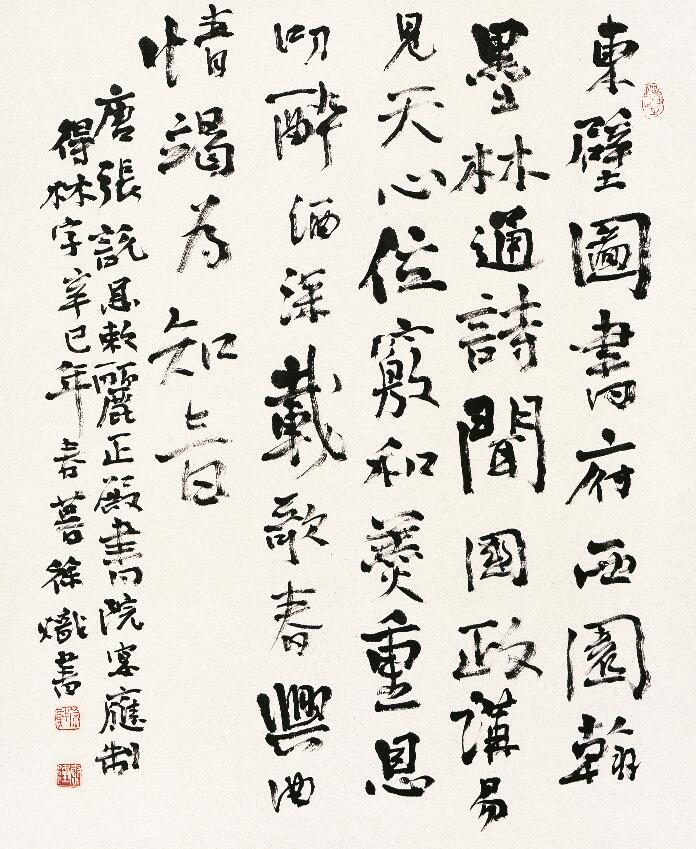 東壁圖書府西園翰
墨林通詩聞國政講易
見天心位竅和羹重恩
叨醉酒深載歌春興曲
情竭為知音
唐張説恩敕麗正殿書院宴應制
得林字辛巳年春暮徐熾書